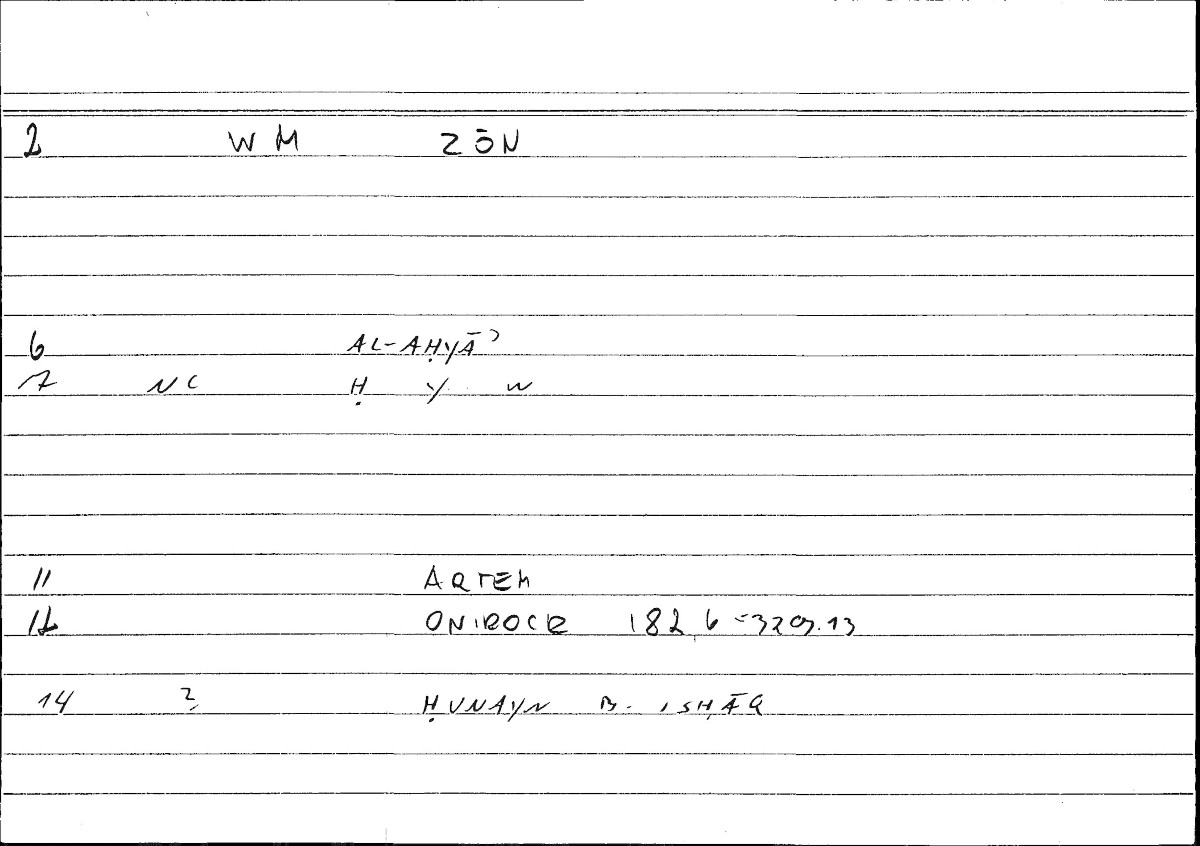 2 WM ZŌN
6 AL-AḤYĀʾ
7 NC Ḥ Y W
11 ARTEM
12 ONIROCR 182,6=329.13
14 ? ḤUNAYN B. ISḤĀQ